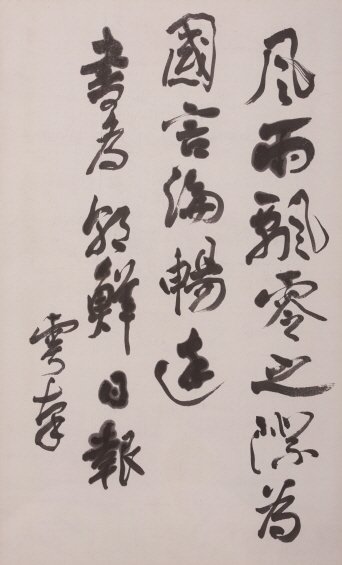 風雨飄零之際為
國言論暢達
書為朝鮮日報
雩南